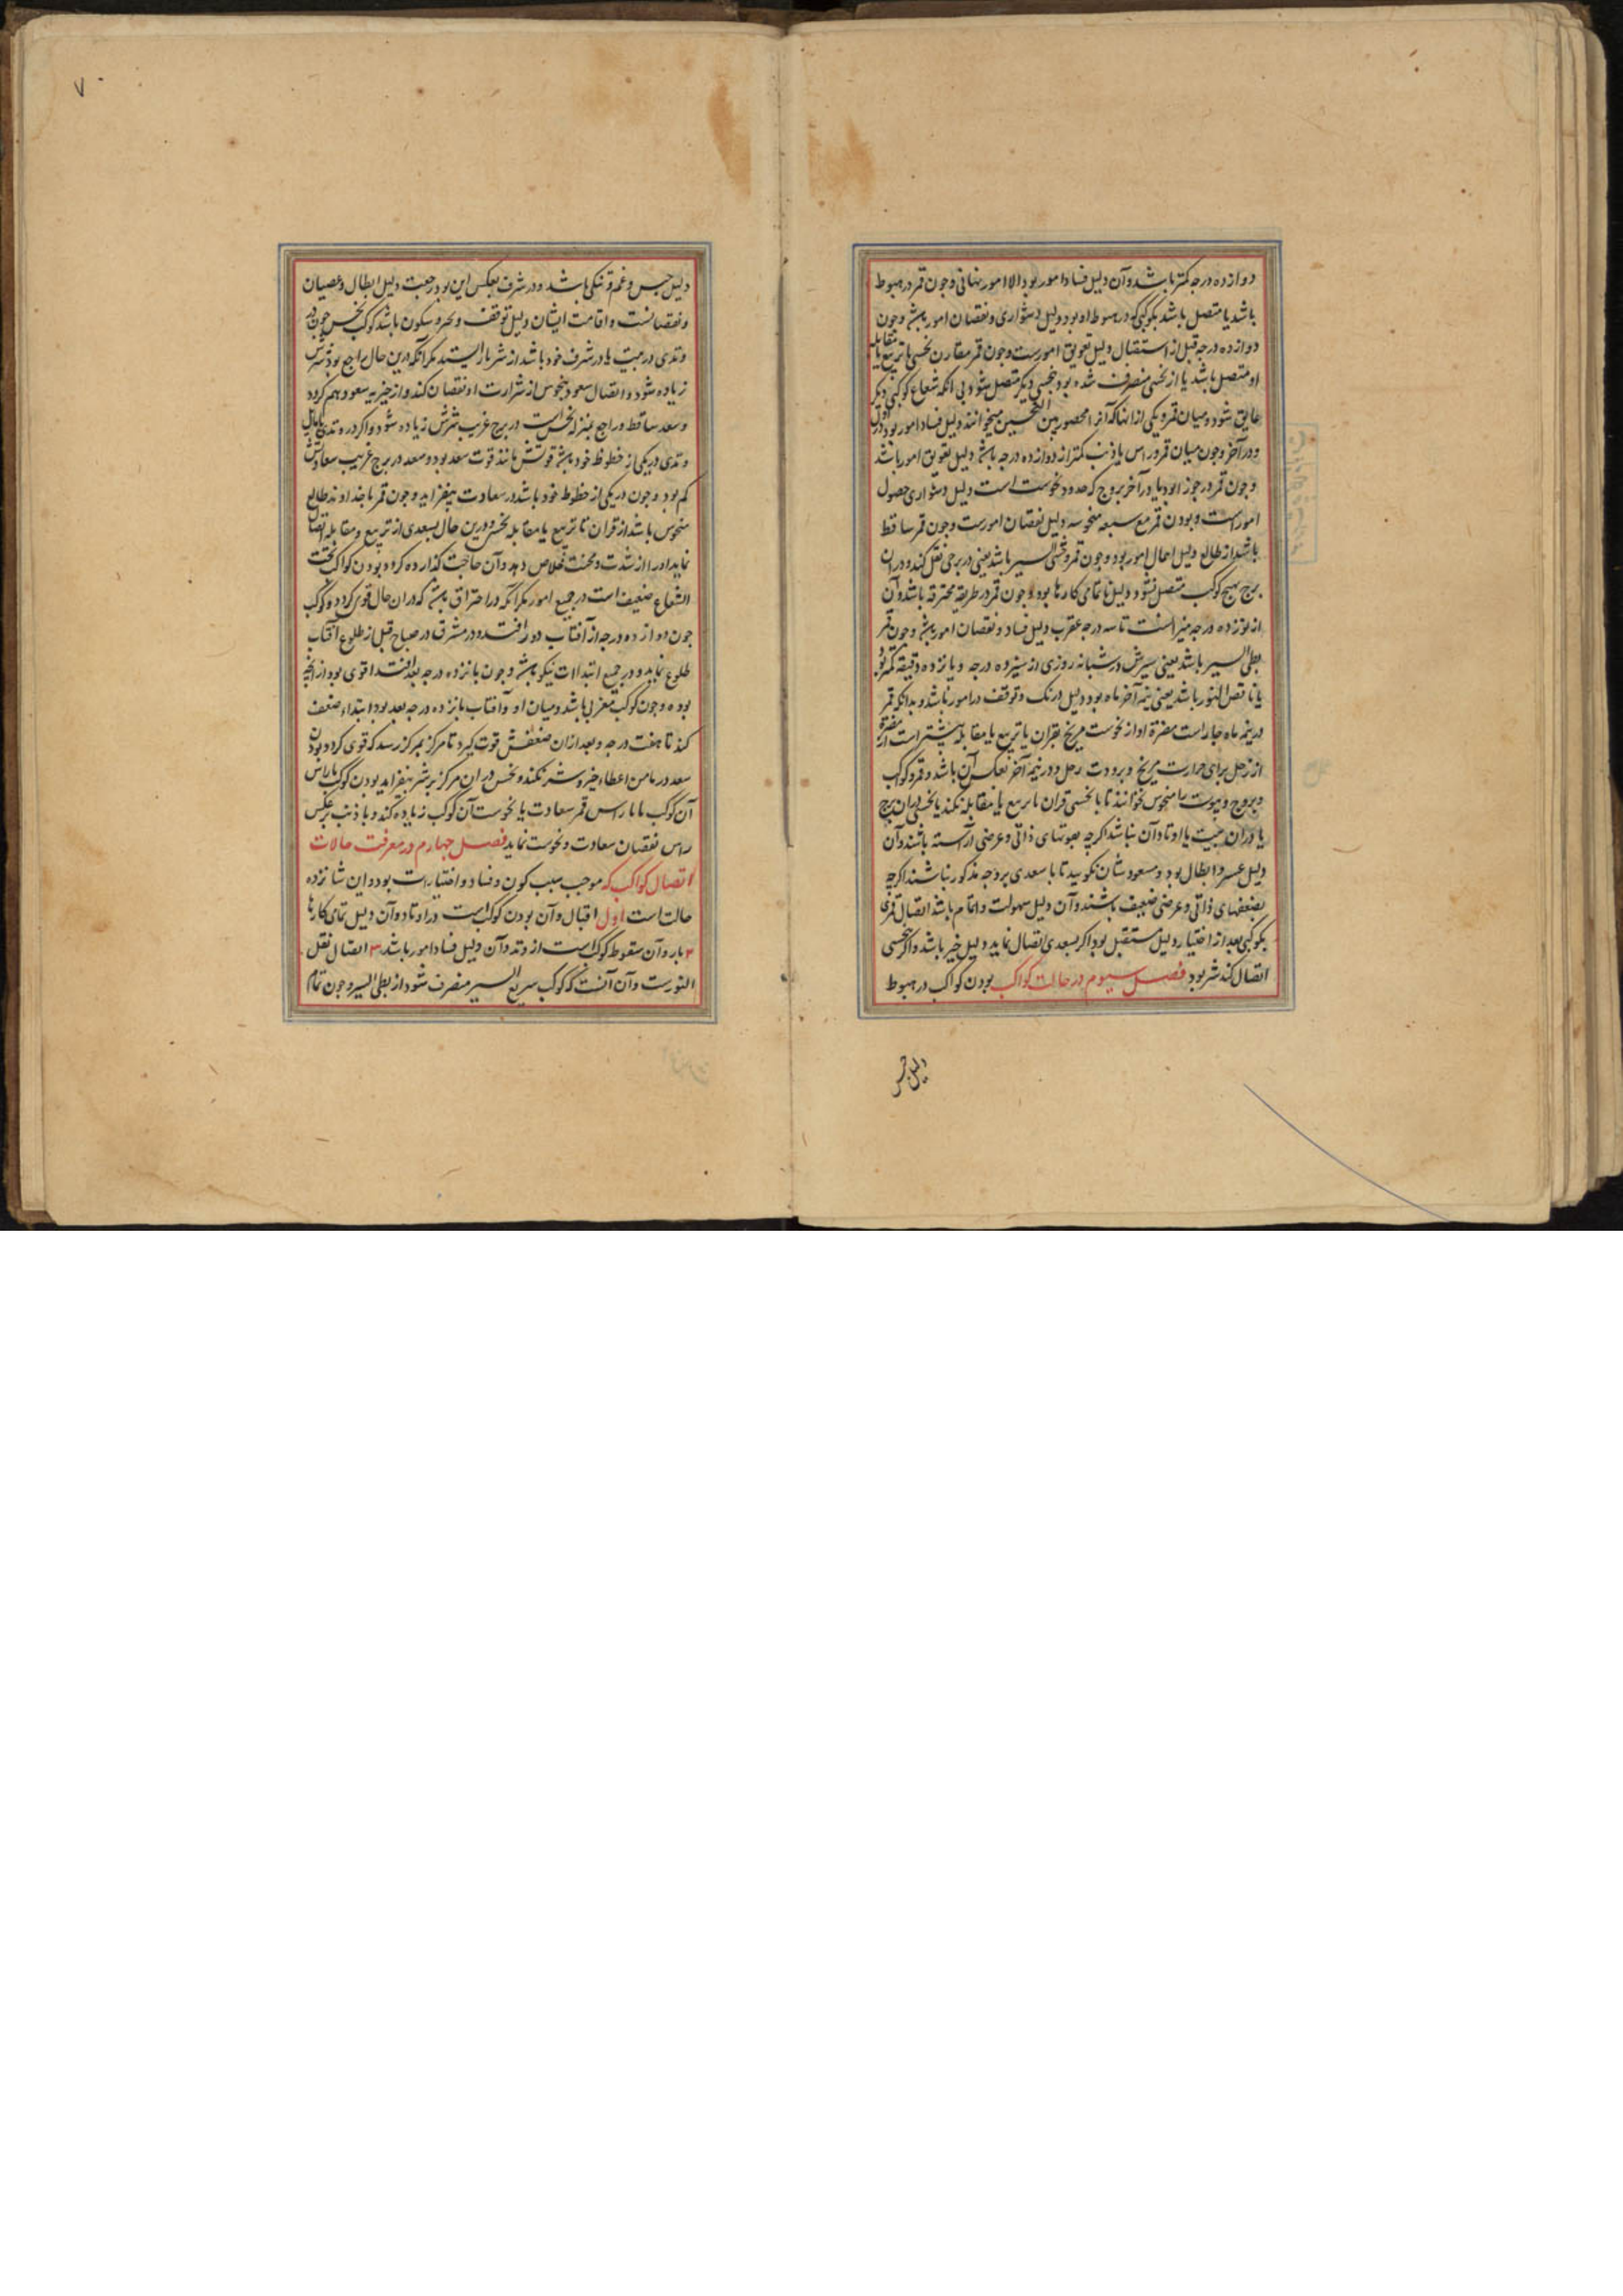 دوازده درجه کمتر باشد و آن دلیل فساد امور بود الا امور نهانی و چون قمر در هبوط
باشد یا متصل باشد بکوکبی که در هبوط او بود دلیل دشواری و نقصان امور باشد و چون
دوازده درجه قبل از استقبال دلیل تعویق امورست و چون قمر مقارن نحسی یا تربیع یا مقابله
او متصل باشد یا از نحسی منصرف شده بود بنحسی دیگر متصل شود بی آنکه شعاع کوکبی دیگر
عایق شود و میان قمر و یکی از انها که آنرا محصور بین النحسین میخوانند دلیل فساد امور بود در اول
و در آخر و چون میان قمر و راس یا ذنب کمتر از دوازده درجه باشد دلیل تعویق امور باشد
و چون قمر در جوزا بود یا در آخر بروج که حدود نحوست است دلیل دشواری حصول
امور است و بودن قمر مع سبعه منحوسه دلیل نقصان امورست و چون قمر ساقط
باشد از طالع دلیل اهمال امور بود و چون قمر وحشی السیر باشد یعنی در برجی نقل کند و در ان
برج بهیچ کوکب متصل نشود دلیل ناتمامی کارها بود و چون قمر در طریقه محترقه باشد و آن
از نوزده درجه میزانست تا سه درجه عقرب دلیل فساد و نقصان امور باشد و چون قمر
بطی السیر باشد یعنی سیرش در شبانه روزی از سیزده درجه و پانزده دقیقه کمتر بود
یا ناقص النور باشد یعنی نیمه آخر ماه بود دلیل درنک و توقف در امور باشد و بدانکه قمر
در نیمه ماه جار است مضرة او از نحوست مریخ بقران یا تربیع یا مقابله بیشتر است از مضرة
از زحل برای حرارت مریخ و برودت زحل و در نیمه آخر بعکس آن باشد و قمر و کواکب
و بروج و بیوت را منحوس نخوانند تا با نحسی قران یا تربیع یا مقابله نکند یا نحسی در ان برج
یا در ان بیت یا اوتاد آن نباشد اکرچه بقوتهای ذاتی و عرضی آراسته باشند و آن
دلیل عسر و ابطال بود و مسعودشان نکویید تا با سعدی بر وجه مذکور نباشند اکرچه
بضعفهای ذاتی و عرضی ضعیف باشند و آن دلیل سهولت و اتمام باشد اتصال قمری
بکوکبی بعد از اختیار دلیل مستقبل بود اکر بسعدی اتصال نماید دلیل خیر باشد و اکر بنحسی
اتصال کند شر بود فصل سیوم در حالات کواکب بودن کواکب در هبوط
دلیل حبس
۷
دلیل حبس و غم و تنکی باشد و در شرف بعکس این بود رجعت دلیل ابطال و عصیان
و نقصانست و اقامت ایشان دلیل توقف و سکون باشد کوکب نحس چون در
وتدی در بیت یا در شرف خود باشد از شر باز ایستد مکر آنکه درین حال راجع بود شرش
زیاده شود و اتصال سعود بنحوس از شرارت او نقصان کند و از خیریه سعود هم کردد
و سعد ساقط و راجع بمنزله نحس است در برج غریب شرش زیاده شود و اکر در وتدی
وتدی در یکی از حظوظ خود باشد قوتش مانند قوت سعد بود و سعد در برج غریب سعادتش
کم بود و چون در یکی از حظوظ خود باشد در سعادت بیفزاید و چون قمر یا خداوند طالع
منحوس باشد از قران یا تربیع یا مقابله نحس و درین حال بسعدی از تربیع و مقابله اتصال
نماید او را از شدت و محنت خلاص دهد و آن حاجت کذارده کردد و بودن کواکب تحت
الشعاع ضعیف است در جمیع امور مکر آنکه در احتراق باشد که در ان حال قوی کردد و کوکب
چون دوازده درجه از آفتاب دور افتد و در مشرق در صباح قبل از طلوع آفتاب
طلوع نماید و در جمیع ابتداات نیکو باشد و چون پانزده درجه بعد افتد اقوی بود از انچه
بوده و چون کوکب مغربی باشد و میان او و آفتاب پانزده درجه بعد بود ابتداء ضعف
کند تا هفت درجه و بعد از ان ضعفش قوت کیرد تا مرکز بمرکز رسد که قوی کردد و بودن
سعد در ثامن اعطاء خیر و شر نکند و نحس در ان مرکز بر شر بیفزاید بودن کوکب با راس
آن کوکب یا با راس قمر سعادت یا نحوست آن کوکب زیاده کند و با ذنب برعکس
راس نقصان سعادت و نحوست نماید فصل چهارم در معرفت حالات
اتصال کواکب که موجب سبب کون و فساد و اختیارات بود و این شانزده
حالت است اول اقبال و آن بودن کوکب است در اوتاد و آن دلیل تمامی کارها
۲ بار و آن سقوط کوکب است از وتد و آن دلیل فساد امور باشد ۳ اتصال نقل
النورست و آن آنست که کوکب سریع السیر منصرف شود از بطی السیر و چون تمام